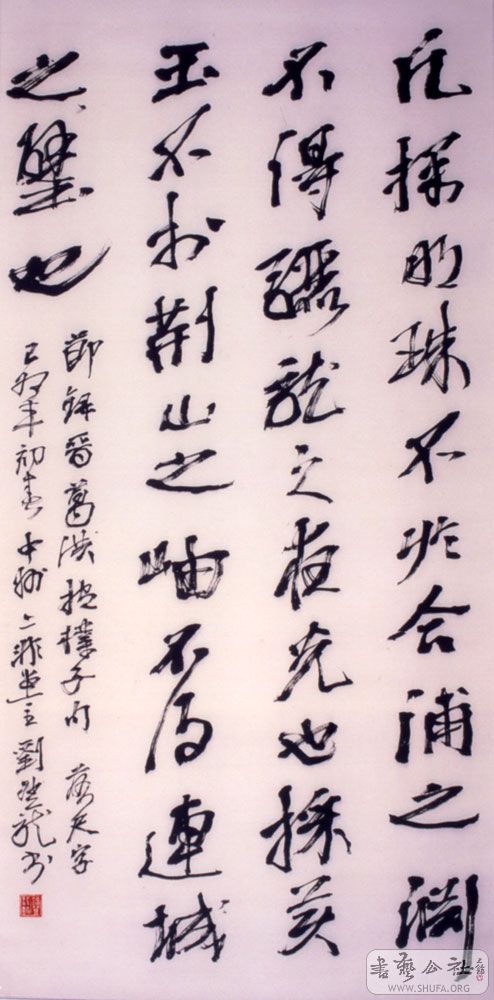 凡探明珠不於合浦之淵
不得驪龍之夜光也採美
玉不於荊山之岫不得連城
之璧也
節錄晉葛洪抱樸子句 落尺字
己卯年初春中州二非堂主劉龍书
書藝公社
WWW.SHUFA.ORG